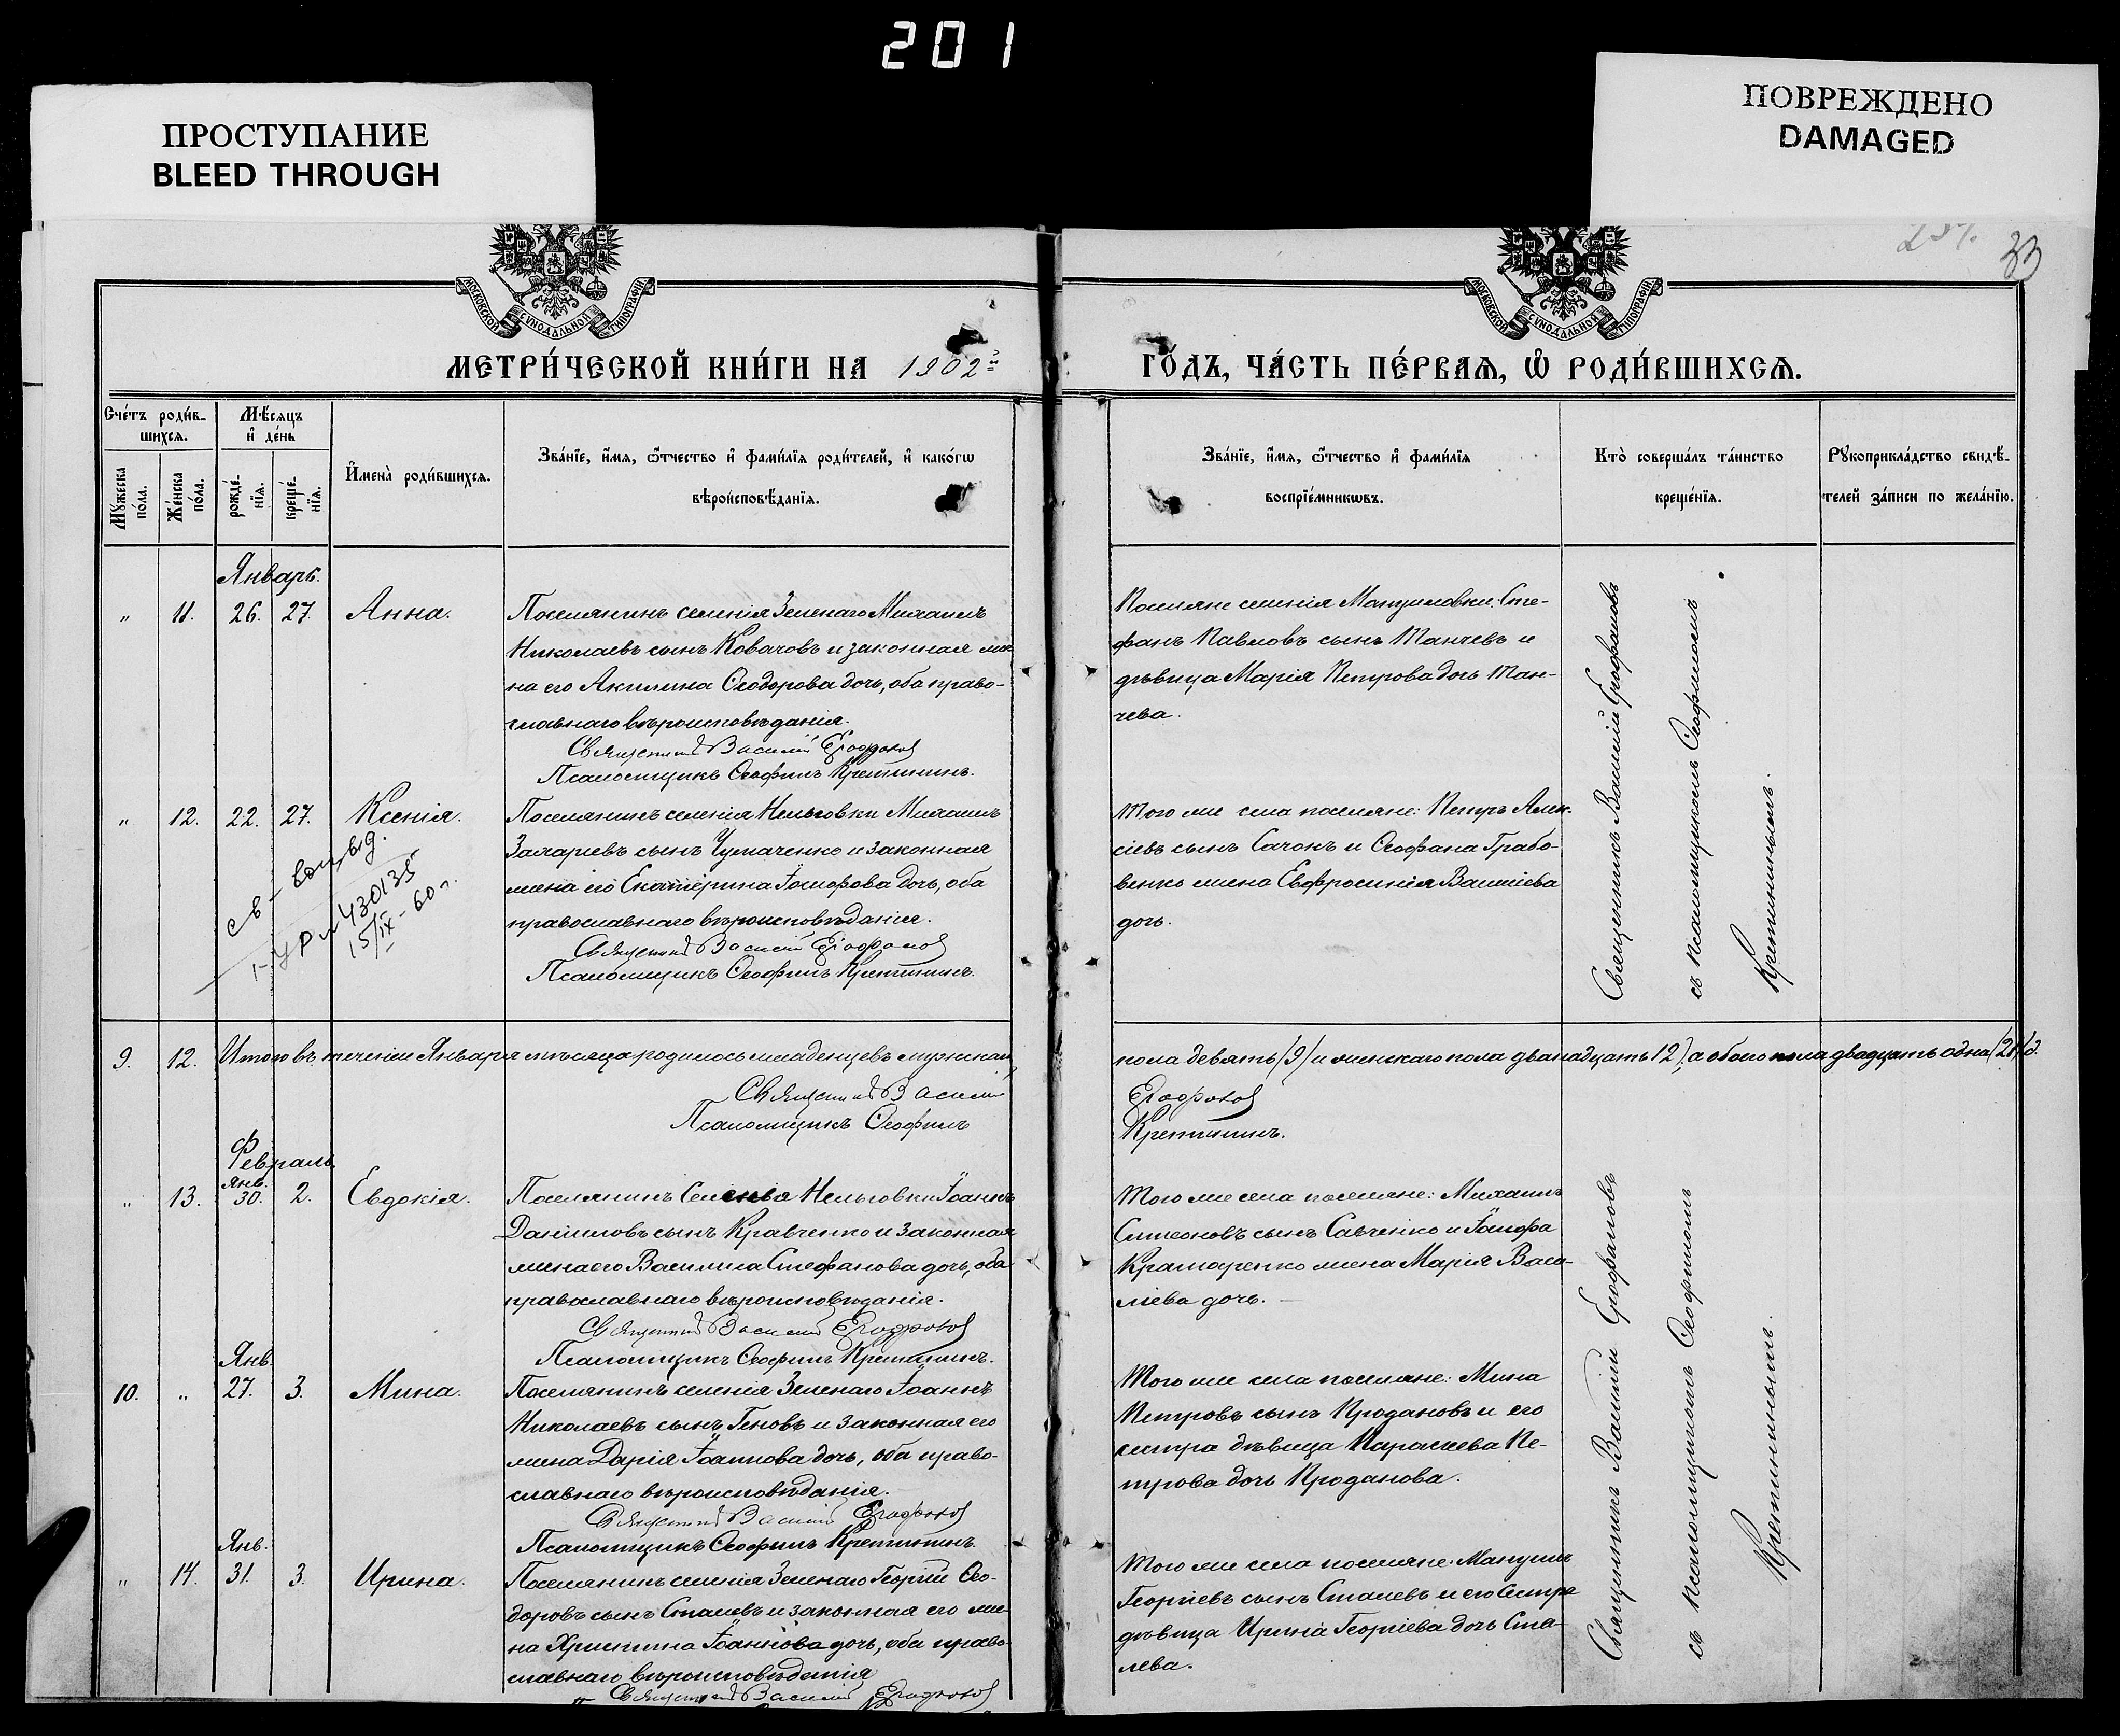 201
ПРОСТУПАНИЕ
BLEED THROUGH
ПОВРЕЖДЕНО
DAMAGED
33
МОСКОВСКОЙ СѴНОДАЛЬНОЙ ТИПОГРАФІИ
МОСКОВСКОЙ СѴНОДАЛЬНОЙ ТИПОГРАФІИ
МЕТРИ́ЧЕСКОЙ КНИ́ГИ НА 1902 го́дъ, ЧА́СТЬ ПЕ́РВАѦ, Ѡ҆ РОДИ́ВШИХСѦ.
Сче́тъ роди́в-
шихсѧ.
Мѣ́сяцъ
и҆ де́нь
Мꙋ́жеска
по́ла.
Же́нска
по́ла.
рожде́-
нїѧ.
креще́-
нїѧ.
И҆мена̀ роди́вшихсѧ.
Зва́нїе, и҆́мѧ, ѻ҆́тчество и҆ фами́лїѧ роди́телей, и҆ како́гѡ
вѣроисповѣ́данїѧ.
Зва́нїе, и҆́мѧ, ѻ҆́тчество и҆ фами́лїѧ
воспрїе́мникѡвъ.
Кто̀ соверша́лъ та́инство
креще́нїѧ.
Рꙋкоприкла́дство свидѣ́-
телей за́писи по жела́нїю.
Январь.
„ 11. 26. 27. Анна.
Поселянинъ селенія Зеленаго Михаилъ
Николаевъ сынъ Ковачовъ и законная же-
на его Акилина Ѳеодорова дочь, оба право-
славнаго вѣроисповѣданія.
Священникъ Василій Ерофаловъ
Псаломщикъ Ѳеофилъ Крептинъ.
Поселяне селенія Мануиловки: Сте-
фанъ Павловъ сынъ Танчевъ и
дѣвица Марія Петрова дочь Тан-
чева.
Священникъ Василій Ерофаловъ
съ псаломщикомъ Ѳеофиломъ
„ 12. 22. 27. Ксенія.
св-
430135
15/IX-60 г.
Поселянинъ селенія Нельговки Михаилъ
Захаріевъ сынъ Чумаченко и законная
жена его Екатерина Іосифова дочь, оба
православнаго вѣроисповѣданія.
Священникъ Василій Ерофаловъ
Псаломщикъ Ѳеофилъ
Того же села поселяне: Петръ Алек-
сіевъ сынъ Сачокъ и Ѳеофана Грабо-
венко жена Евфросинія Василіева
дочь.
9. 12. Итого въ теченіи Января мѣсяца родилось младенцевъ мужскаго
пола девять (9) и женскаго пола двѣнадцать 12), а обоего пола двадцать одна (21)
Священникъ Василій
Ерофаловъ
Псаломщикъ Ѳеофилъ
Февраль
„ 13. Янв. 30. 2. Евдокія.
Поселянинъ Селенія Нельговки Іоаннъ
Даніиловъ сынъ Кравченко и законная
жена его Василиса Стефанова дочь, оба
православнаго вѣроисповѣданія.
Священникъ Василій Ерофаловъ
Псаломщикъ Ѳеофилъ
Того же села поселяне: Михаилъ
Симеоновъ сынъ Савченко и Іосифа
Крамаренко жена Марія Васи-
ліева дочь.
Священникъ Василій Ерофаловъ
съ псаломщикомъ Ѳеофиломъ
10. „ Янв. 27. 3. Мина.
Поселянинъ селенія Зеленаго Іоаннъ
Николаевъ сынъ Геновъ и законная его
жена Дарія Іоаннова дочь, оба право-
славнаго вѣроисповѣданія.
Священникъ Василій Ерофаловъ
Псаломщикъ Ѳеофилъ
Того же села поселяне: Мина
Петровъ сынъ Продановъ и его
сестра дѣвица Параскева Пе-
трова дочь Проданова.
„ 14. Янв. 31. 3. Ирина.
Поселянинъ селенія Зеленаго Георгій Ѳео-
доровъ сынъ Сталевъ и законная его же-
на Христина Іоаннова дочь, оба право-
славнаго вѣроисповѣданія
Священникъ Василій Ерофаловъ
Того же села поселяне: Мануилъ
Георгіевъ сынъ Сталевъ и его сестра
дѣвица Ирина Георгіева дочь Ста-
лева.